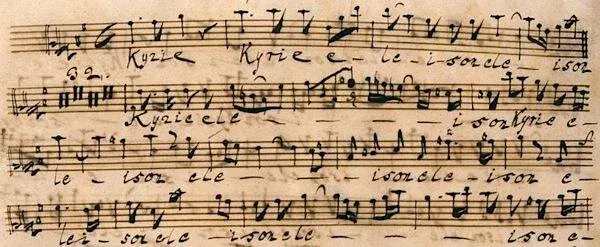 Kyrie Kyrie e - le - i - son ele - ison
32.
Kyrie ele - - - - - i son Kyrie e -
le - ison ele - - - - ison ele - ison e -
lei - son ele - ison ele - - - - - - ison e -